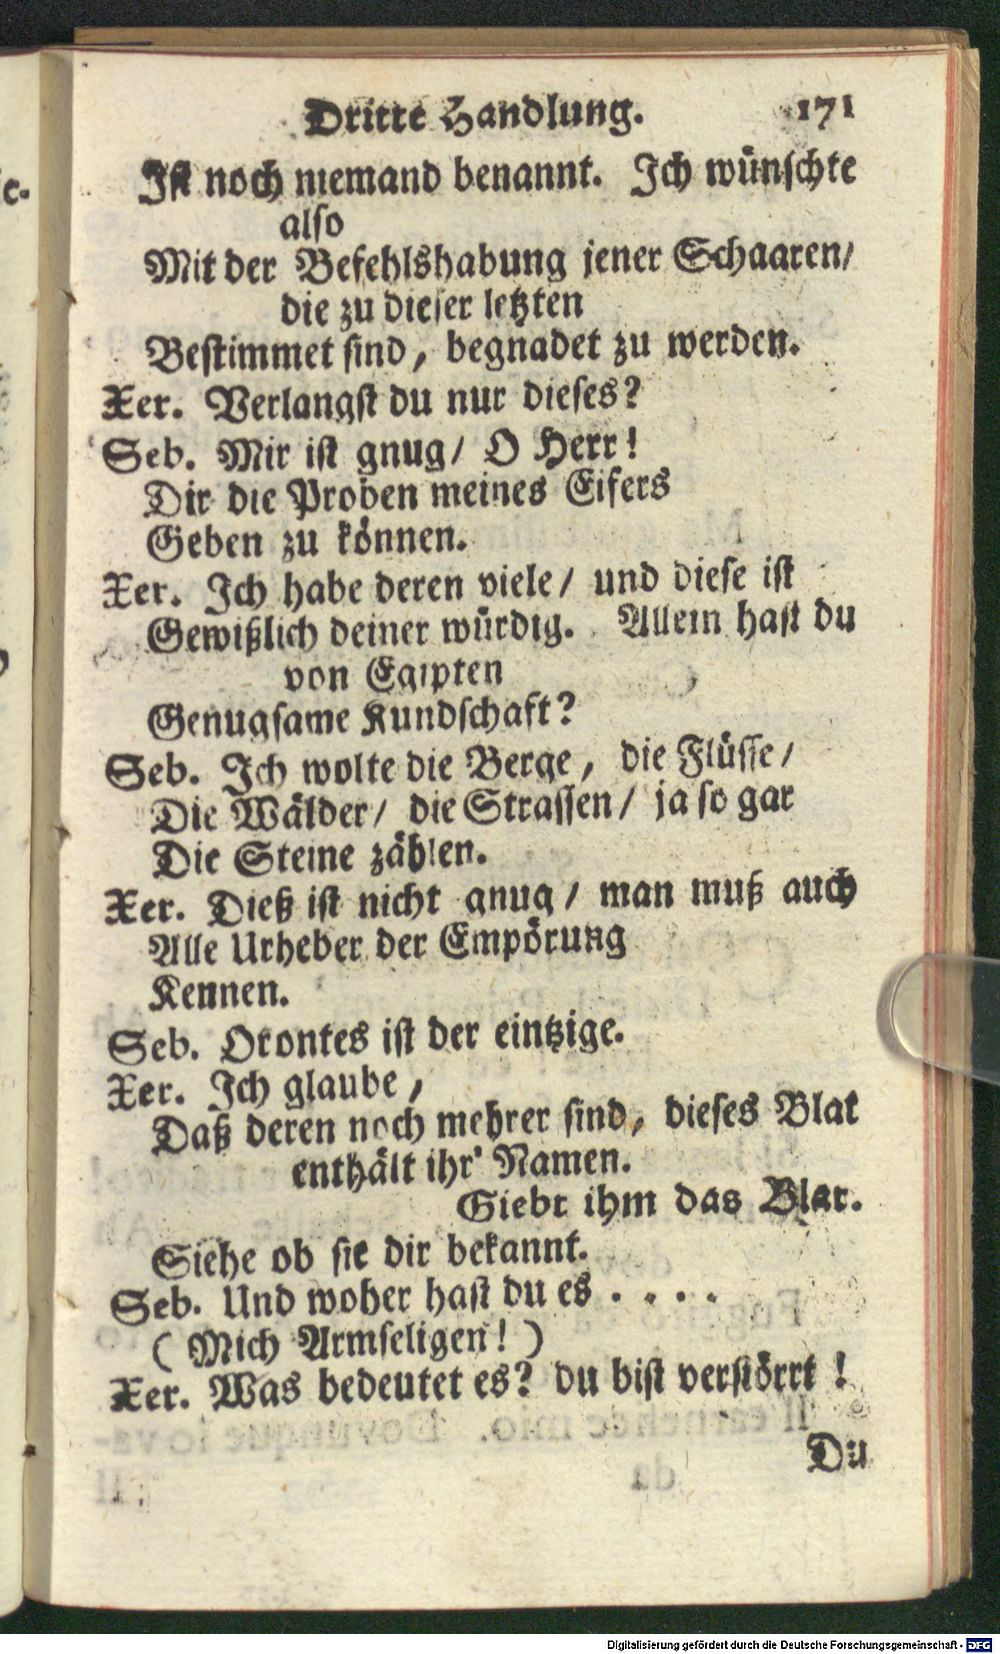 Dritte Handlung. 171
Ist noch niemand benannt. Ich wünschte
also
Mit der Befehlshabung jener Schaaren/
die zu dieser letzten
Bestimmet sind, begnadet zu werden.
Xer. Verlangst du nur dieses?
Seb. Mir ist gnug/ O Herr!
Dir die Proben meines Eifers
Geben zu können.
Xer. Ich habe deren viele/ und diese ist
Gewißlich deiner würdig. Allein hast du
von Egipten
Genugsame Kundschaft?
Seb. Ich wolte die Berge, die Flüsse/
Die Wälder/ die Strassen/ ja so gar
Die Steine zählen.
Xer. Dieß ist nicht gnug/ man muß auch
Alle Urheber der Empörung
Kennen.
Seb. Orontes ist der eintzige.
Xer. Ich glaube,
Daß deren noch mehrer sind, dieses Blat
enthält ihr' Namen.
Giebt ihm das Blat.
Siehe ob sie dir bekannt.
Seb. Und woher hast du es . . . .
( Mich Armseligen! )
Xer. Was bedeutet es? du bist verstörrt !
Du
Digitalisierung gefördert durch die Deutsche Forschungsgemeinschaft - DFG